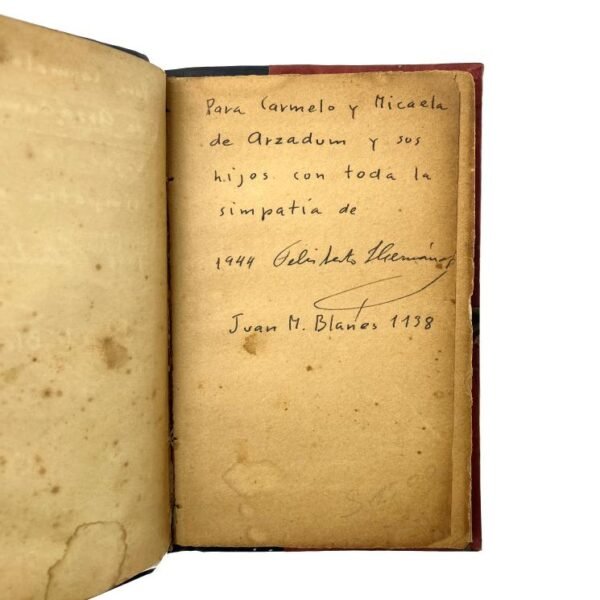 Para Carmelo y Micaela
de Arzadum y sus
hijos con toda la
simpatía de
1944 Felisberto Hernández
Juan M. Blanes 1138